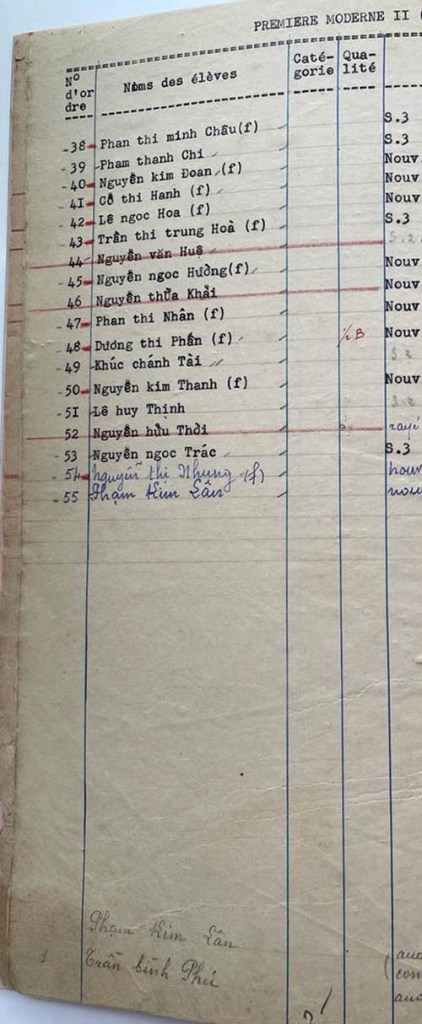 PREMIERE MODERNE II (
N° d'or dre Noms des élèves Caté- gorie Qua- lité
-38- Phan thi minh Châu(f) S.3
-39 -Pham thanh Chi S.3
-40- Nguyễn kim Đoan (f) Nouv
-41- Cổ thi Hanh (f) Nouv
-42- Lê ngoc Hoa (f) Nouv
-43- Trần thi trung Hoà (f) S.3
44 Nguyễn văn Huệ S.2
-45- Nguyễn ngoc Hường(f) Nouv
46 Nguyễn thừa Khải Nouv
-47- Phan thi Nhân (f) Nouv
-48- Dương thi Phấn (f) 1/2 B Nouv
-49 -Khúc chánh Tài S.2
-50- Nguyễn kim Thanh (f) Nouv
-51 Lê huy Thịnh S.2
52 Nguyễn hữu Thời rayé
-53 Nguyễn ngoc Trác S.3
-54- Nguyễn thi Nhung (f) nouv
-55 Phạm Kim Lân nouv
Phạm Kim Lân
1 Trần Đình Phú